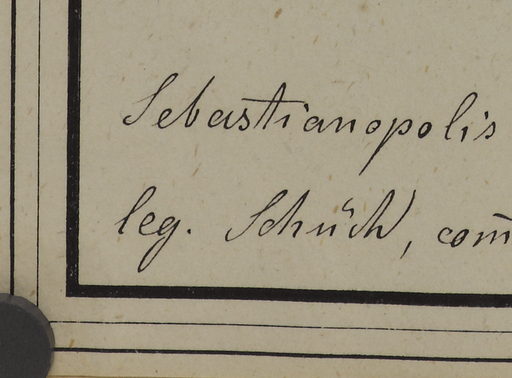 Sebastianopolis
leg. Schüch, com̅